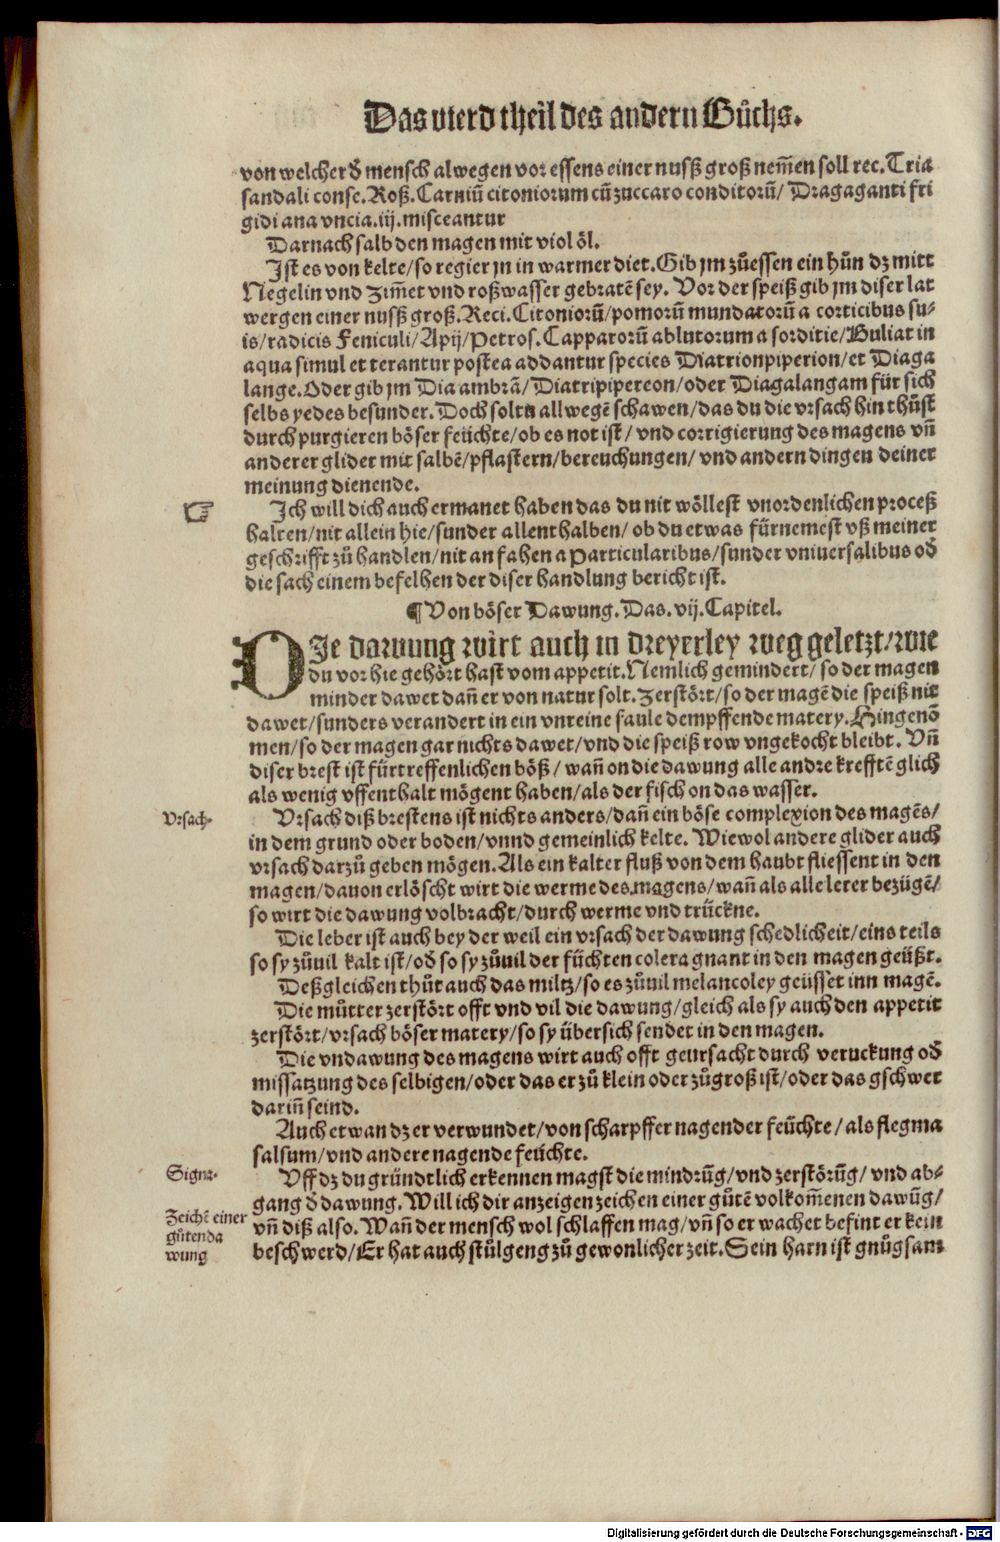 Das vierd theil des andern Bůchs.
von welcher đ mensch alwegen vor essens einer nusß groß nem̃en soll rec. Tria
sandali conse. Roß. Carniū citoniorum cū zuccaro conditorū/ Dragaganti fri
gidi ana vncia. iij. misceantur
Darnach salb den magen mit viol öl.
Ist es von kelte/ so regier jn in warmer diet. Gib jm zů essen ein hůn dz mitt
Negelin vnd zim̃et vnd roßwasser gebratē sey. Vor der speiß gib jm diser lat
wergen einer nusß groß. Reci. Citoniorū/ pomorū mundatorū a corticibus su-
is/ radicis Feniculi/ Apij/ Petros. Capparorū ablutorum a sorditie/ Buliat in
aqua simul et terantur postea addantur species Diatrionpiperion/ et Diaga
lange. Oder gib jm Dia ambrā/ Diatripipereon/ oder Diagalangam für sich
selbs yedes besunder. Doch soltu allwegē schawen/ das du die vrsach hin thůst
durch purgieren böser feüchte/ ob es not ist/ vnd corrigierung des magens vñ
anderer glider mit salbē/ pflastern/ bereuchungen/ vnd andern dingen deiner
meinung dienende.
☞ Ich will dich auch ermanet haben das du nit wöllest vnordenlichen proceß
halten/ nit allein hie/ sunder allenthalben/ ob du etwas fürnemest vß meiner
geschrifft zů handlen/ nit an fahen a Particularibus/ sunder vniuersalibus ođ
die sach einem befelhen der diser handlung bericht ist.
¶ Von böser Dawung. Das. vij. Capitel.
DIe dawung wirt auch in dreyerley weg geletzt/ wie
du vor hie gehört hast vom appetit. Nemlich gemindert/ so der magen
minder dawet dañ er von natur solt. Zerstört/ so der magē die speiß nit
dawet/ sunders verandert in ein vnreine faule dempffende matery. Hingenō
men/ so der magen gar nichts dawet/ vnd die speiß row vngekocht bleibt. Vñ
diser brest ist fürtreffenlichen böß/ wañ on die dawung alle andre krefftē glich
als wenig vffenthalt mögent haben/ als der fisch on das wasser.
Vrsach. Vrsach diß brestens ist nichts anders/ dañ ein böse complexion des magēs/
in dem grund oder boden/ vnnd gemeinlich kelte. Wiewol andere glider auch
vrsach darzů geben mögen. Als ein kalter fluß von dem haubt fliessent in den
magen/ dauon erlöscht wirt die werme des magens/ wañ als alle lerer bezügē/
so wirt die dawung volbracht/ durch werme vnd trückne.
Die leber ist auch bey der weil ein vrsach der dawung schedlicheit/ eins teils
so sy zůuil kalt ist/ ođ so sy zůuil der füchten colera gnant in den magen geüßt.
Deßgleichen thůt auch das miltz/ so es zůuil melancoley geüsset inn magē.
Die můtter zerstört offt vnd vil die dawung/ gleich als sy auch den appetit
zerstört/ vrsach böser matery/ so sy übersich sendet in den magen.
Die vndawung des magens wirt auch offt geursacht durch veruckung ođ
missatzung des selbigen/ oder das er zů klein oder zů groß ist/ oder das gschwer
dariñ seind.
Auch etwan dz er verwundet/ von scharpffer nagender feüchte/ als flegma
salsum/ vnd andere nagende feüchte.
Signa. Vff dz du gründtlich erkennen magst die mindrūg/ vnd zerstörūg/ vnd ab-
gang đ dawung. Will ich dir anzeigen zeichen einer gůtē volkom̃enen dawūg/
Zeichē einer gůten da wung
vñ diß also. Wañ der mensch wol schlaffen mag/ vñ so er wachet befint er kein
beschwerd/ Er hat auch stůlgeng zů gewonlicher zeit. Sein harn ist gnůgsam
Digitalisierung gefördert durch die Deutsche Forschungsgemeinschaft - DFG